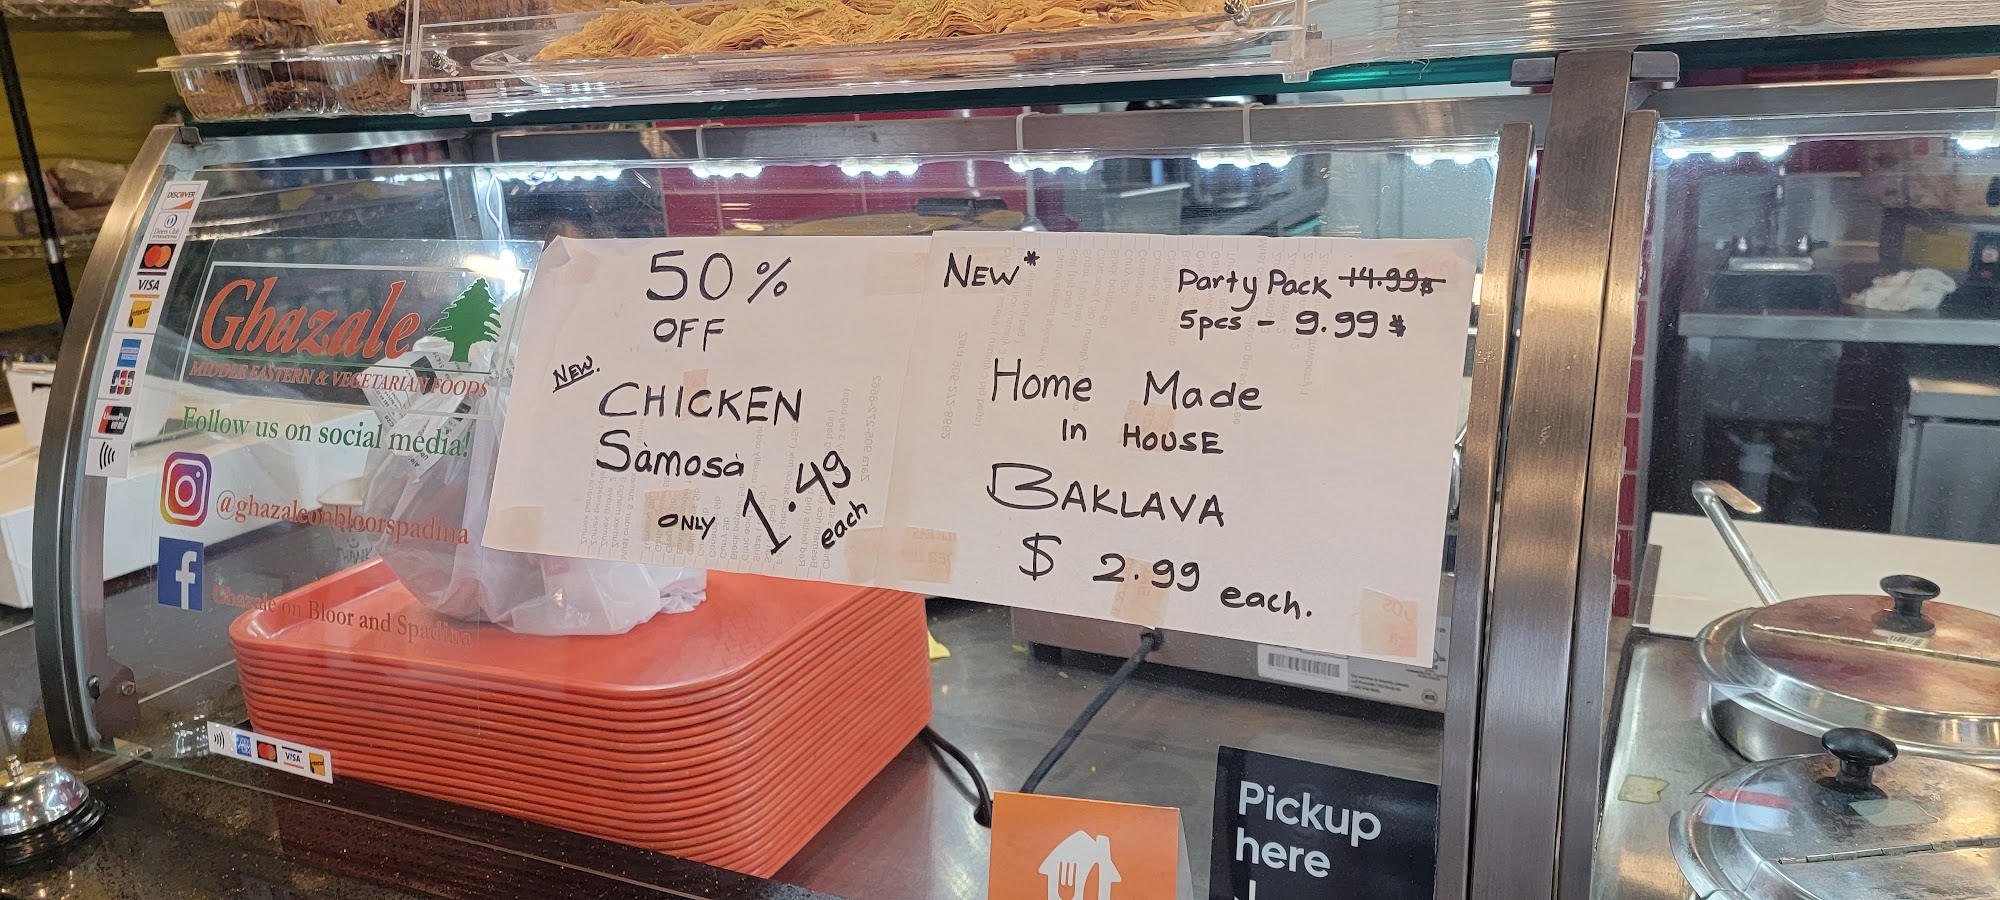 DISCOVER
Diners Club
INTERNATIONAL
VISA
Ghazale
MIDDLE EASTERN & VEGETARIAN FOODS
Follow us on social media!
@ghazaleonbloorspadina
Ghazale on Bloor and Spadina
VISA
50%
OFF
NEW.
CHICKEN
Sàmosà
ONLY 1.49
each
NEW*
Party Pack 14.99$
5pcs - 9.99$
Home Made
In HOUSE
BAKLAVA
$ 2.99 each.
Pickup
here